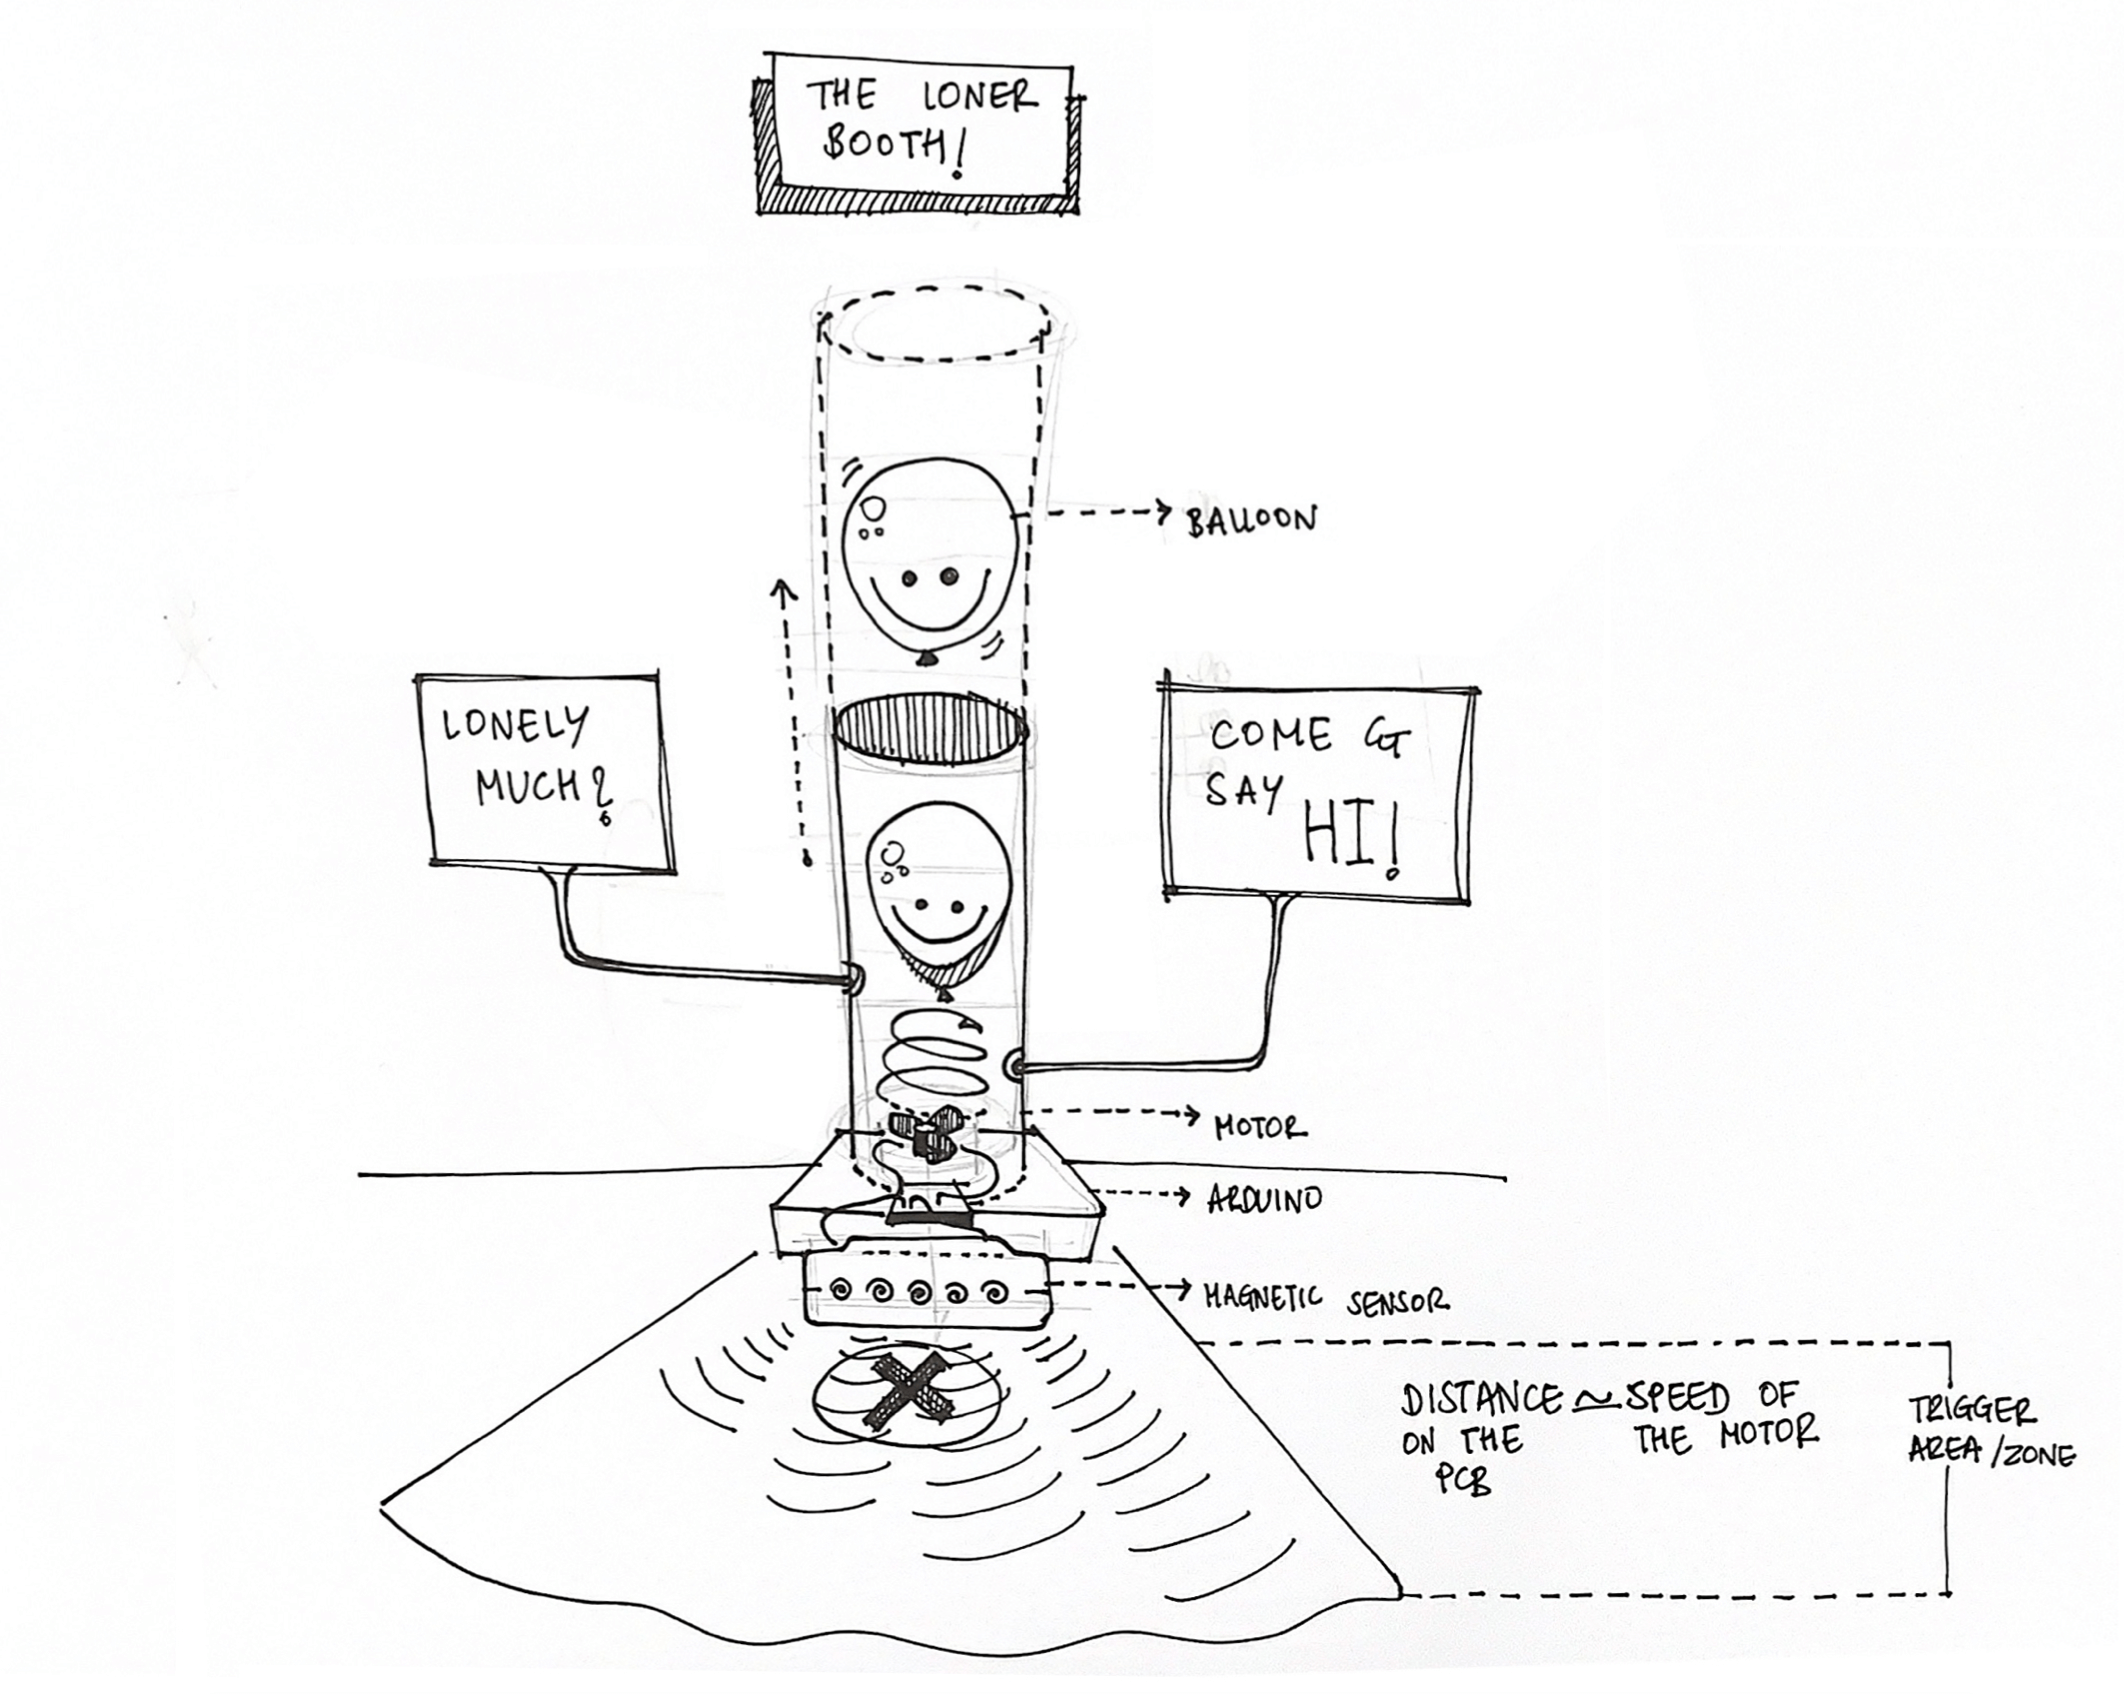 THE LONER
BOOTH!
BALLOON
LONELY
MUCH?
COME &
SAY
HI!
MOTOR
ARDUINO
MAGNETIC SENSOR
DISTANCE ≃ SPEED OF
ON THE THE MOTOR
PCB
TRIGGER
AREA/ZONE